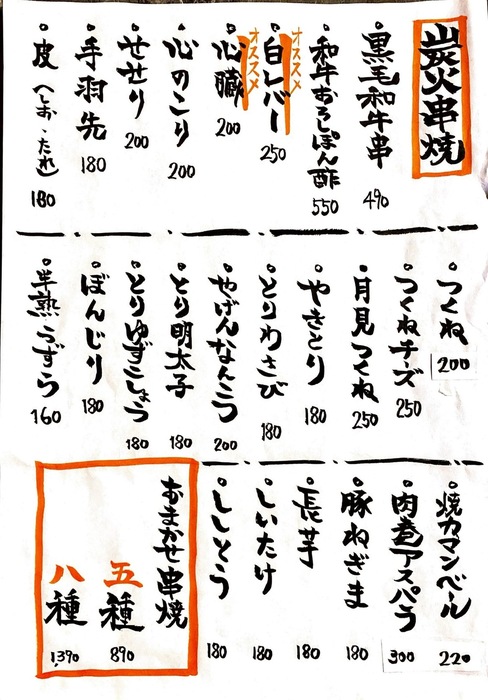 炭火串焼
黒毛和牛串 490
和牛おろしぽん酢 550
オススメ
白レバー 250
オススメ
心臓 200
心のこり 200
せせり 200
手羽先 180
皮(しお・たれ) 180
つくね 200
つくねチーズ 250
月見つくね 250
やきとり 180
とりわさび 180
やげんなんこつ 200
とり明太子 180
とりゆずこしょう 180
ぼんじり 180
半熟うずら 160
焼カマンベール 220
肉巻アスパラ 300
豚ねぎま 180
長芋 180
しいたけ 180
ししとう 180
おまかせ串焼
五種 890
八種 1,390